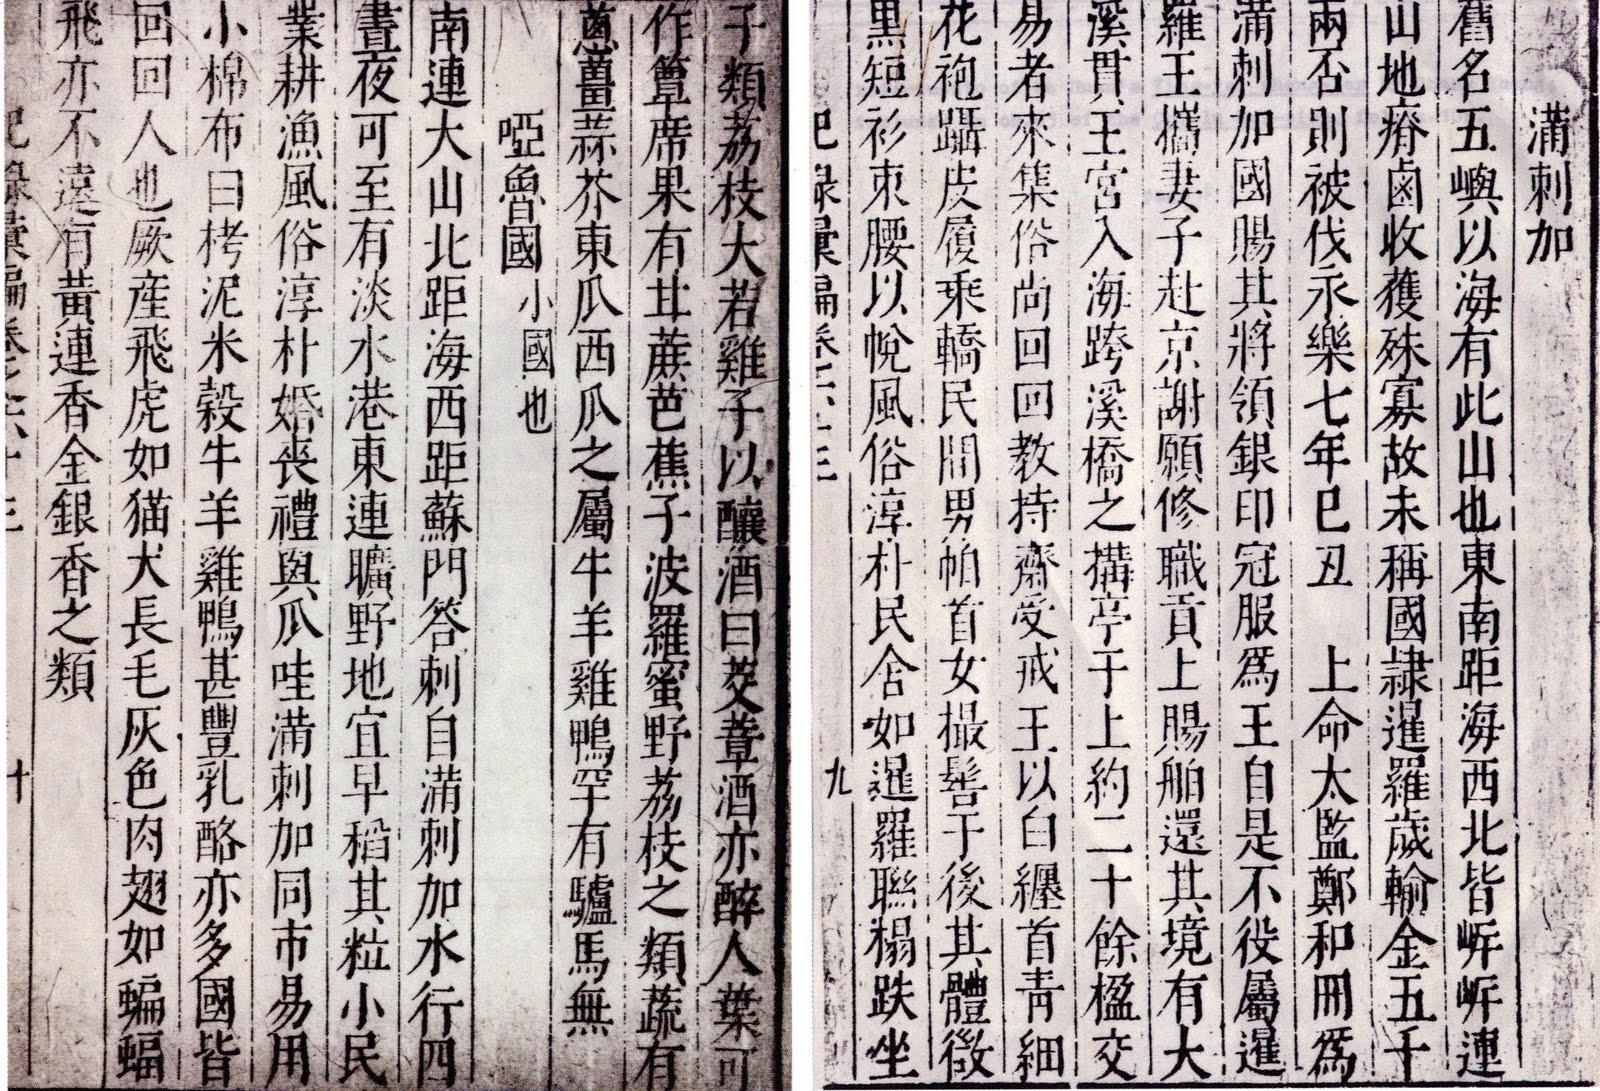 滿剌加
舊名五嶼以海有此山也東南距海西北皆岍岍連
山地瘠鹵收獲殊寡故未稱國隷暹羅歲輸金五千
兩否則被伐永樂七年巳丑 上命太監鄭和冊爲
滿剌加國賜其將領銀印冠服爲王自是不役屬暹
羅王攜妻子赴京謝願修職貢上賜舶還其境有大
溪貫王宮入海跨溪橋之搆亭于上約二十餘楹交
易者來集俗尚回回教持齋受戒王以白纏首青細
花袍躡皮履乘轎民間男帕首女撮髻于後其體微
黑短衫束腰以帨風俗淳朴民舍如暹羅聯榻趺坐
紀錄彙編卷六十三
九
子類荔枝大若雞子以釀酒曰茭蕫酒亦醉人葉可
作簟席果有甘蔗芭蕉子波羅蜜野荔枝之類蔬有
蔥薑蒜芥東瓜西瓜之屬牛羊雞鴨罕有驢馬無
啞魯國 小國也
南連大山北距海西距蘇門答剌自滿剌加水行四
晝夜可至有淡水港東連曠野地宜早稻其粒小民
業耕漁風俗淳朴婚丧禮與瓜哇滿剌加同市易用
小棉布曰栲泥米穀牛羊雞鴨甚豐乳酪亦多國皆
回回人也厥産飛虎如猫犬長毛灰色肉翅如蝙蝠
飛亦不遠有黃連香金銀香之類
紀錄彙編卷六十三
十